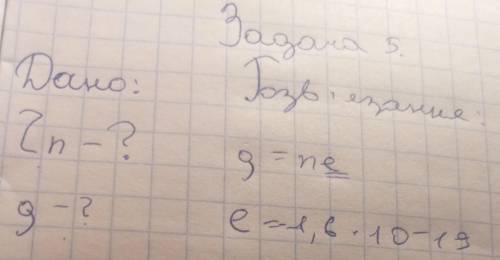 Задача 5.
Дано:
Розв'язання:
Zn - ?
q = ne
q - ?
e = 1,6 · 10 - 19